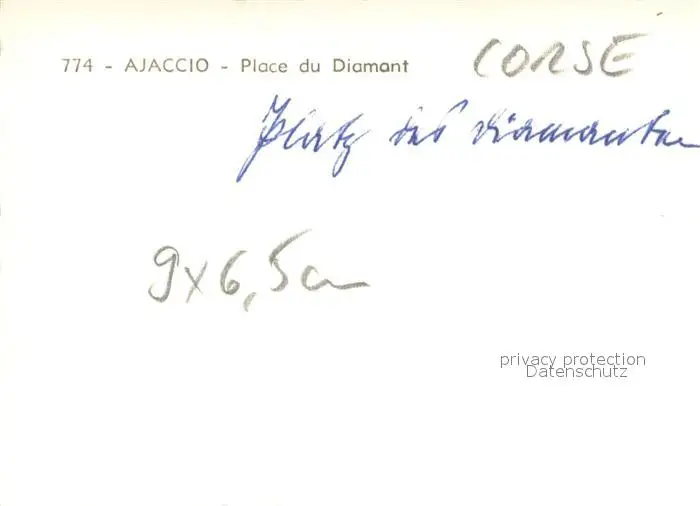 774 - AJACCIO - Place du Diamant CORSE
Platz des Diamanten
9x6,5cm
privacy protection
Datenschutz